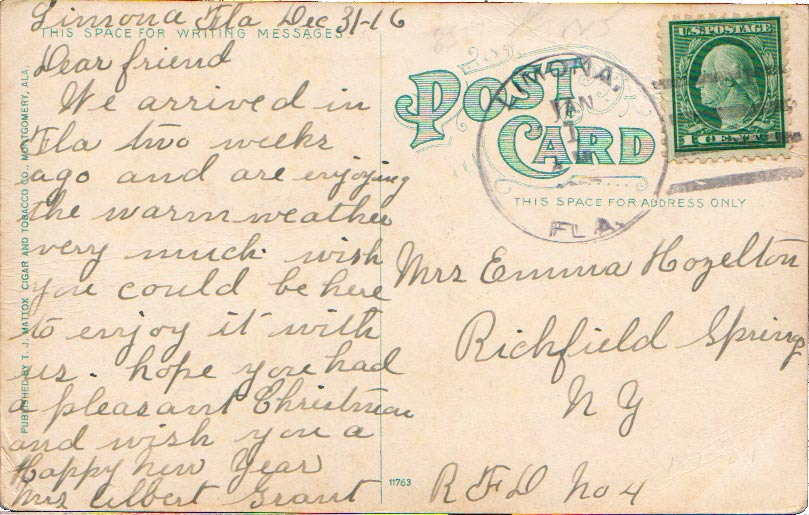 Limona Fla Dec 31-16
THIS SPACE FOR WRITING MESSAGES.
Dear friend
We arrived in
Fla two weeks
ago and are enjoying
the warm weather
very much. wish
you could be here
to enjoy it with
us. hope you had
a pleasant Christmas
and wish you a
Happy New Year
Mrs Albert Grant
PUBLISHED BY T. J. MATTOX CIGAR AND TOBACCO CO., MONTGOMERY, ALA.
POST
CARD
LIMONA,
JAN
1
FLA.
U.S. POSTAGE
1 CENT 1
THIS SPACE FOR ADDRESS ONLY
Mrs Emma Hozelton
Richfield Springs
N Y
R F D No 4
11763